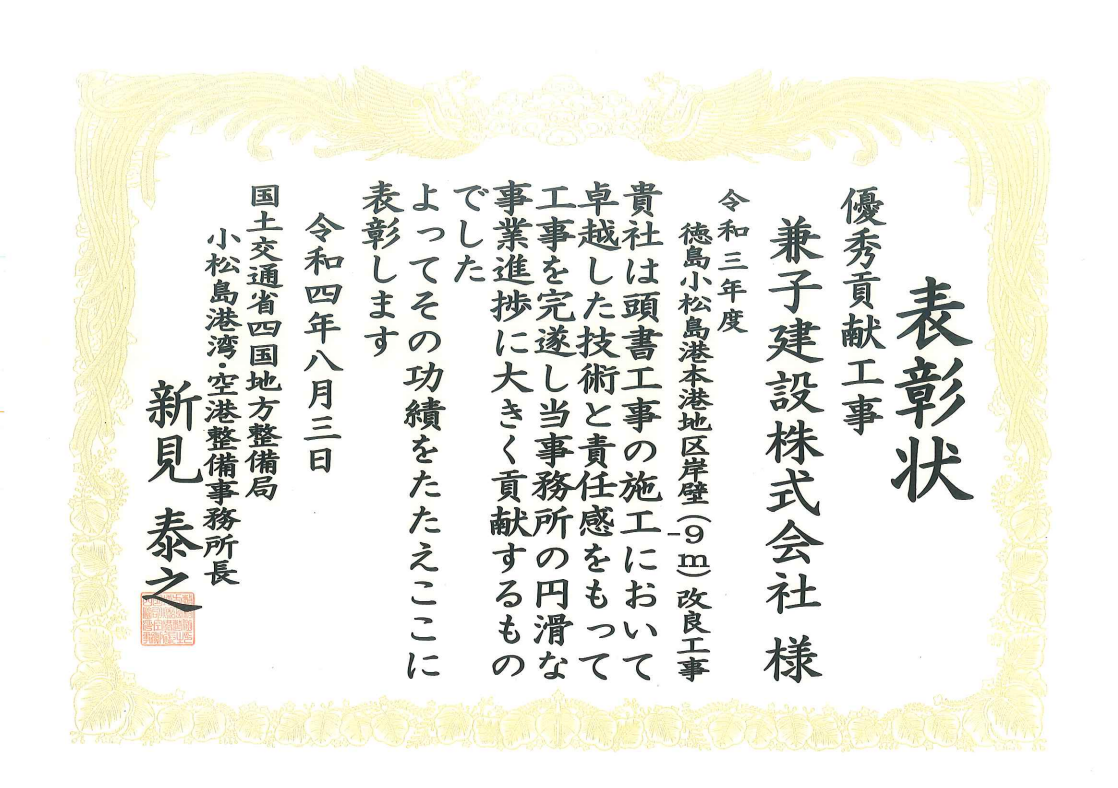 表彰状
優秀貢献工事
兼子建設株式会社 様
令和三年度
徳島小松島港本港地区岸壁(-9m)改良工事
貴社は頭書工事の施工において
卓越した技術と責任感をもって
工事を完遂し当事務所の円滑な
事業進捗に大きく貢献するもの
でした
よってその功績をたたえここに
表彰します
令和四年八月三日
国土交通省四国地方整備局
小松島港湾・空港整備事務所長
新見 泰之